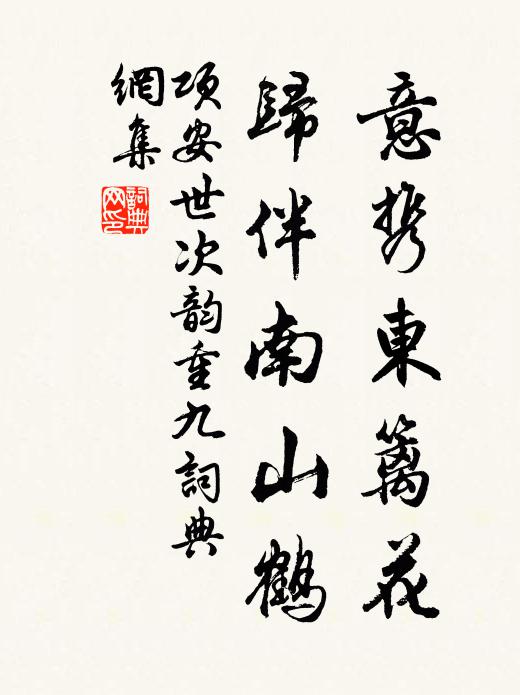 意携東籬花
歸伴南山鶴
項安世次韵重九詞典
網集
詞典網印